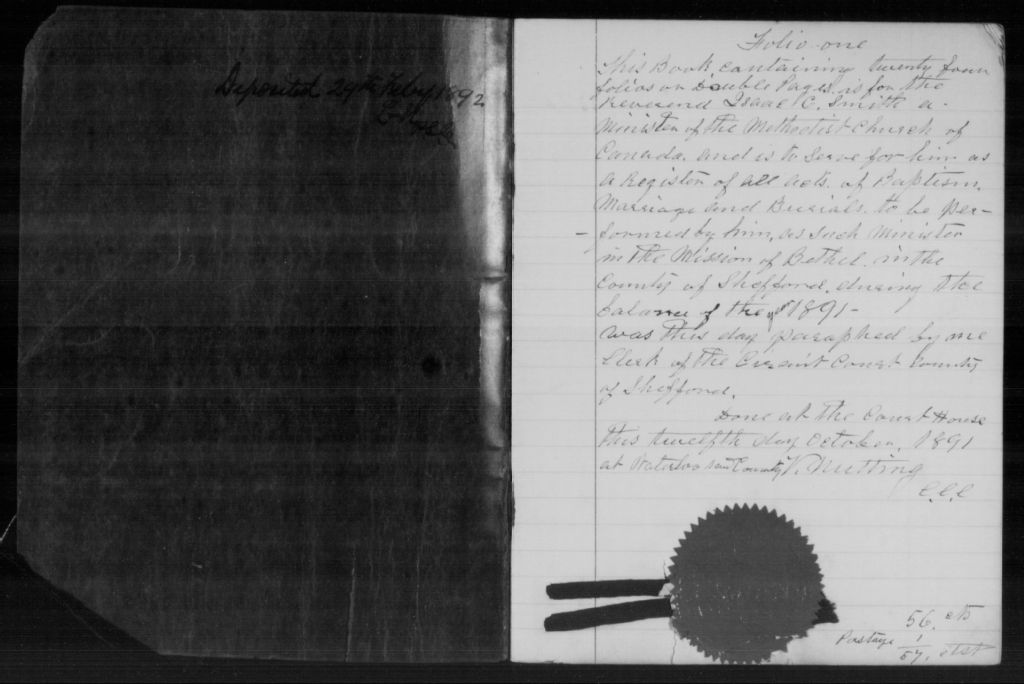 Deposited 29th Feby 1892
Folio one
This Book containing twenty four
folios or Double Pages is for the
Reverend Isaac C. Smith a
Minister of the Methodist Church of
Canada, and is to serve for him as
a Register of all acts of Baptism,
Marriage and Burials to be per-
formed by him, as such Minister
in the Mission of Bethel in the
County of Shefford, during the
balance of the yr 1891 -
was this day paraphed by me
Clerk of the Circuit Court County
of Shefford.
Done at the Court House
this twelfth day October, 1891
at Waterloo said County
Nutting
C.C.C
56. cts
Postage 1
57.